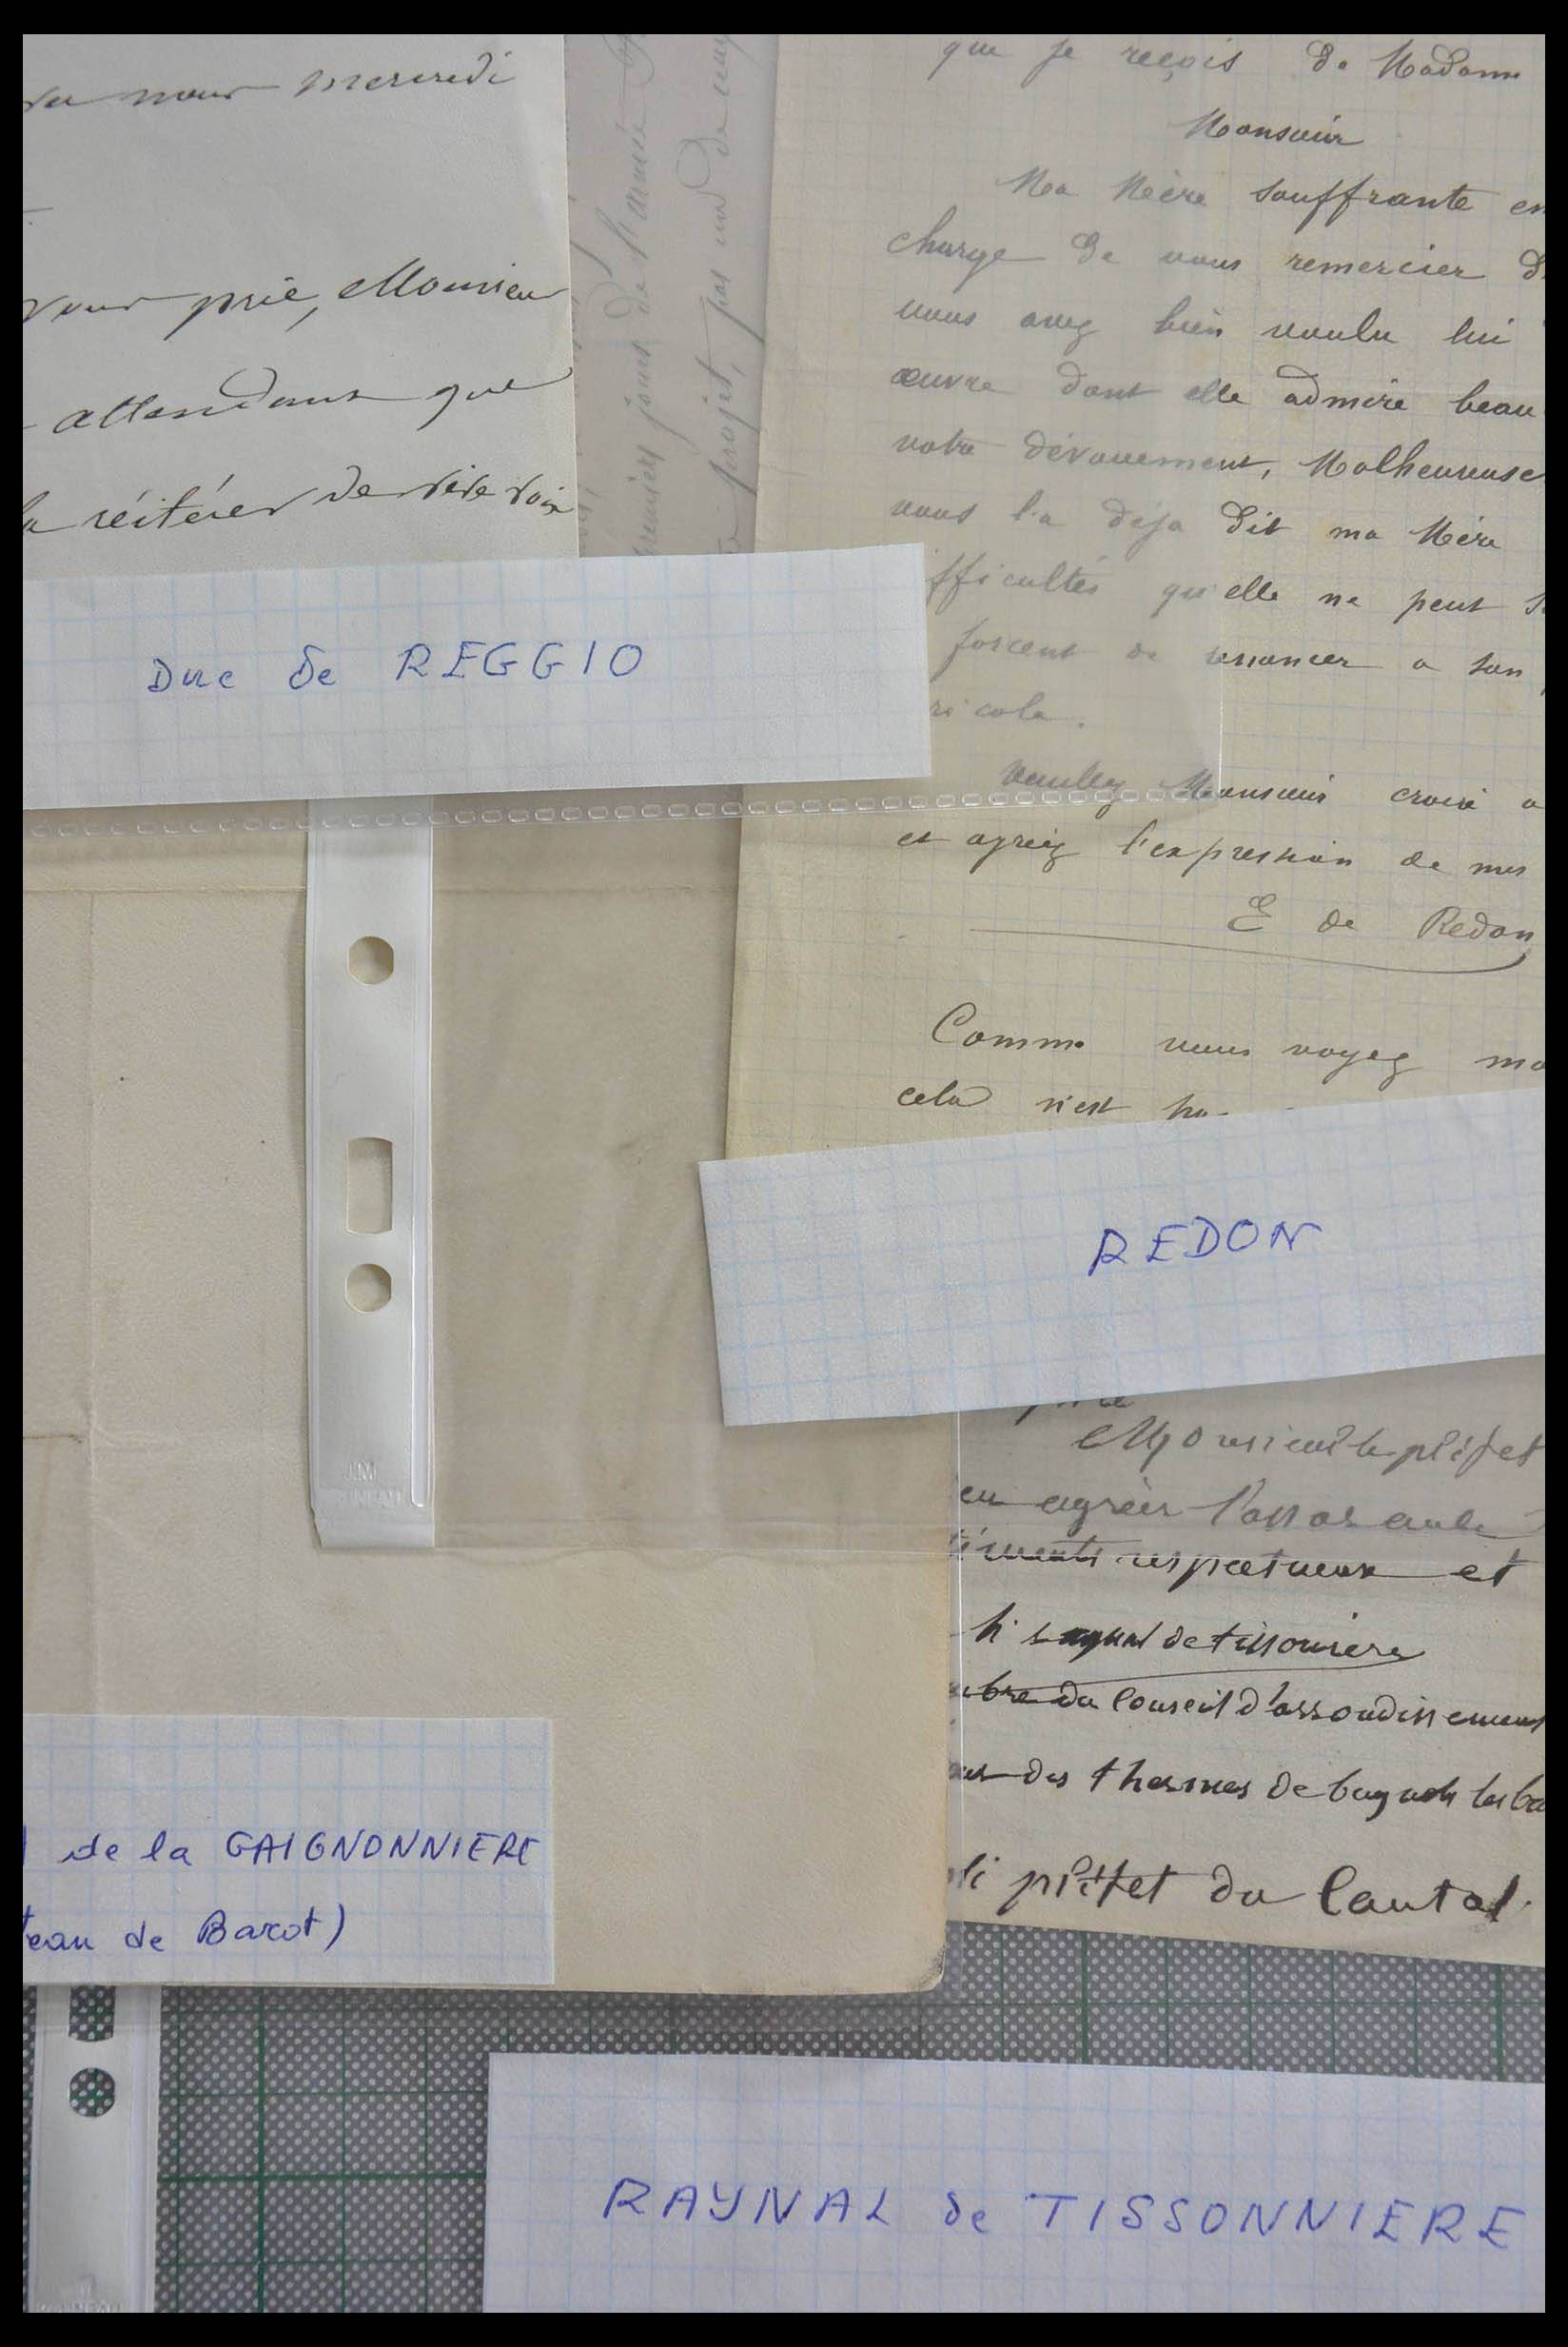 nous mercredi
vous prie, Monsieur
attendant que
la réitérer de vive voix
premiers jours de l'armée
projet, pas un de
Duc de REGGIO
que je reçois de Madame
Monsieur
Ma Mère souffrante
charge de vous remercier
vous avez bien voulu lui
œuvre dont elle admire beau
votre dévouement, Malheureuse
vous l'a déja dit ma Mère
fficultés qu'elle ne peut
forcent de renoncer a son
ricole.
Veuillez Monsieur croire a
et agréez l'expression de mes
E de Redon
Comme vous voyez ma
cela n'est
REDON
Monsieur le préfet
agréer l'assurance
timents respectueux et
h raynal de tissonière
bre du Conseil d'arrondissement
des thermes de bagnols les ba
préfet du Cantal.
de la GAIGNONNIERE
eau de Barot)
RAYNAL de TISSONNIERE